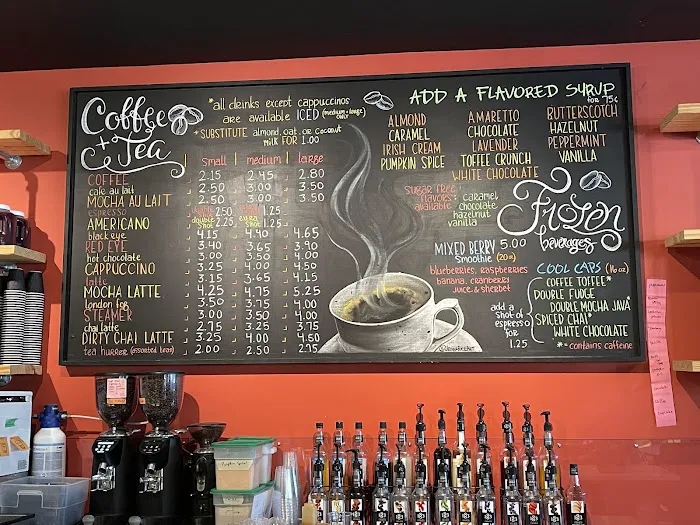 Coffee
+ Tea
*all drinks except cappuccinos
are available ICED (medium + large only)
+ SUBSTITUTE almond, oat, or coconut
milk FOR 1.00
small medium large
COFFEE 2.15 2.45 2.80
cafe au lait 2.50 3.00 3.50
MOCHA AU LAIT 2.50 3.00 3.50
espresso 2.50 1.25
AMERICANO double shot 2.25 extra shot 1.25
black eye 4.15 4.40 4.65
RED EYE 3.40 3.65 3.90
hot chocolate 3.00
CAPPUCCINO 3.25 4.00 4.50
latte 3.65 4.15
MOCHA LATTE 4.25 4.75 5.25
london fog 3.50 4.00
STEAMER 3.00 3.50 4.00
chai latte 2.75 3.25 3.75
DIRTY CHAI LATTE 3.25 4.00
tea hurrer (assorted teas) 2.00 2.50 2.75
ADD A FLAVORED SYRUP
for 75¢
ALMOND AMARETTO BUTTERSCOTCH
CARAMEL CHOCOLATE HAZELNUT
IRISH CREAM LAVENDER PEPPERMINT
PUMPKIN SPICE TOFFEE CRUNCH VANILLA
WHITE CHOCOLATE
SUGAR FREE
flavors
available
caramel
chocolate
hazelnut
vanilla
Frozen
beverages
MIXED BERRY 5.00
Smoothie (20oz)
blueberries, raspberries
banana, cranberry
juice & sherbet
add a
shot of
espresso
for
1.25
COOL CAPS (16oz)
COFFEE TOFFEE*
DOUBLE FUDGE
DOUBLE MOCHA JAVA*
SPICED CHAI*
WHITE CHOCOLATE
* = contains caffeine